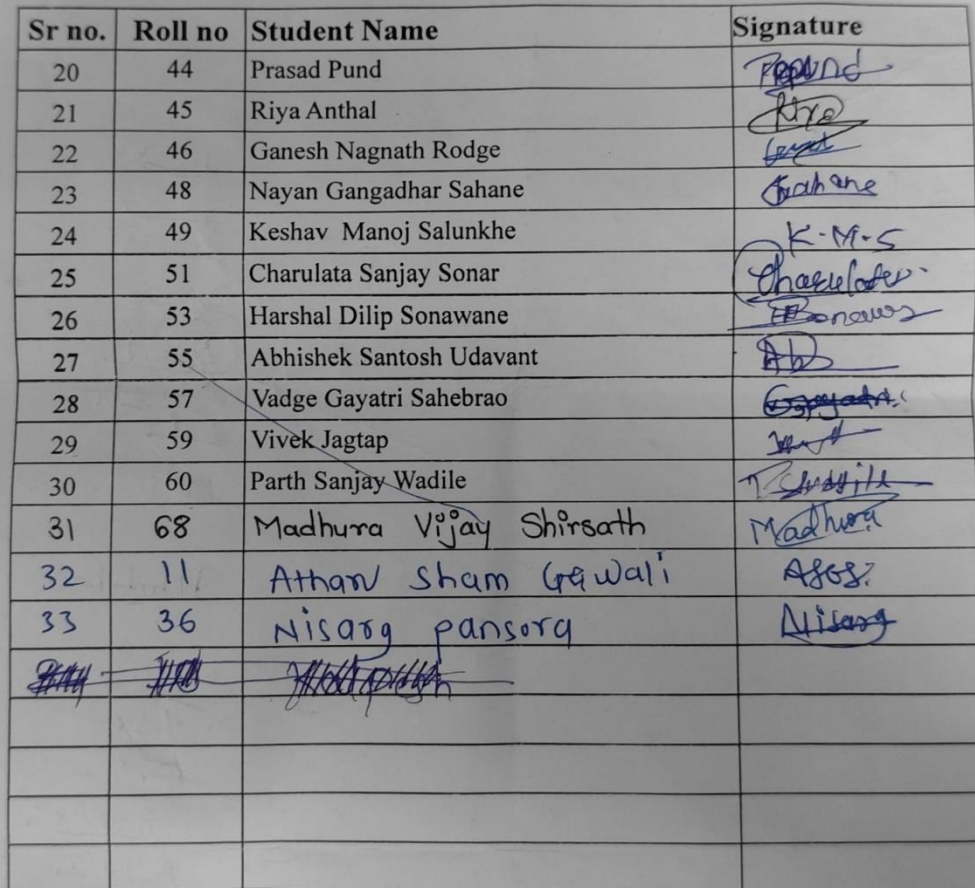 Sr no. Roll no Student Name Signature
20 44 Prasad Pund
21 45 Riya Anthal Riya
22 46 Ganesh Nagnath Rodge
23 48 Nayan Gangadhar Sahane Sahane
24 49 Keshav Manoj Salunkhe K.M.S
25 51 Charulata Sanjay Sonar
26 53 Harshal Dilip Sonawane
27 55 Abhishek Santosh Udavant
28 57 Vadge Gayatri Sahebrao
29 59 Vivek Jagtap
30 60 Parth Sanjay Wadile
31 68 Madhura Vijay Shirsath Madhura
32 11 Atharv Sham Gawali
33 36 Nisarg pansora Nisarg